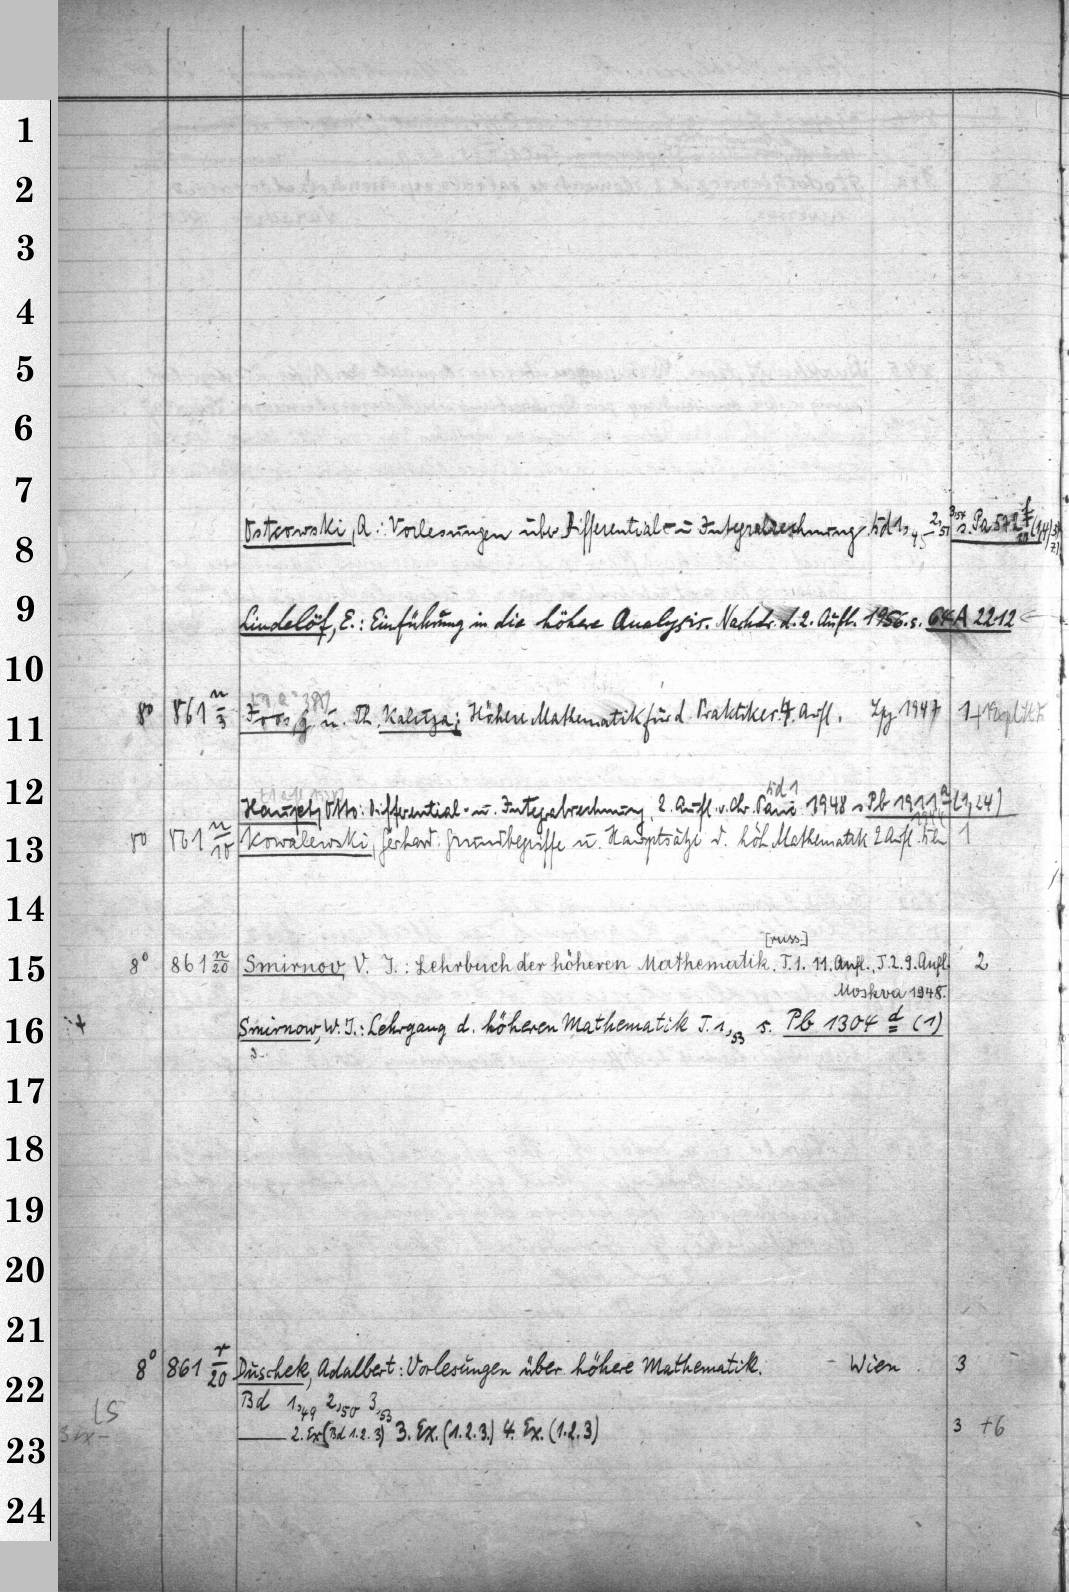 1
2
3
4
5
6
7
Ostrowski, A.: Vorlesungen über Differential- u Integralrechnung Bd 1,45 - 2,51 s. Pa 572
8
9
Lindelöf, E.: Einführung in die höhere Analysis. Nachdr. d. 2. Aufl. 1956. s. 64 A 2212
10
8° 861 n/3 Joos, G u. Th. Kaluza; Höhere Mathematik für d. Praktiker. 4. Aufl. Lpz 1947 1
11
12
Bd 1
Haupt, Otto: Differential- u. Integralrechnung, 2. Aufl. v. Chr. Pauc 1948 s Pb 1911 a (1,24)
8° 861 n/10 Kowalewski, Gerhard. Grundbegriffe u. Hauptsätze d. höh. Mathematik 2 Aufl. Bln 1
13
14
[russ.]
15
8° 861 n/20 Smirnov, V. I.: Lehrbuch der höheren Mathematik. T. 1. 11. Aufl., T. 2. 9. Aufl. 2
Moskva 1948.
16
Smirnow, W. I.: Lehrgang d. höheren Mathematik T. 1,53 s. Pb 1304 d (1)
17
18
19
20
21
8° 861 r/20 Duschek, Adalbert: Vorlesungen über höhere Mathematik. - Wien 3
22
Bd 1,49 2,50 3,53
LS
—— 2. Ex (Bd 1. 2. 3) 3. Ex. (1. 2. 3.) 4. Ex. (1. 2. 3) 3 +6
23
24